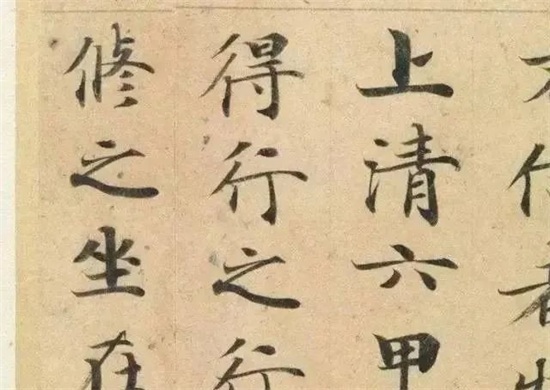 上清六甲
得行之行
修之坐在